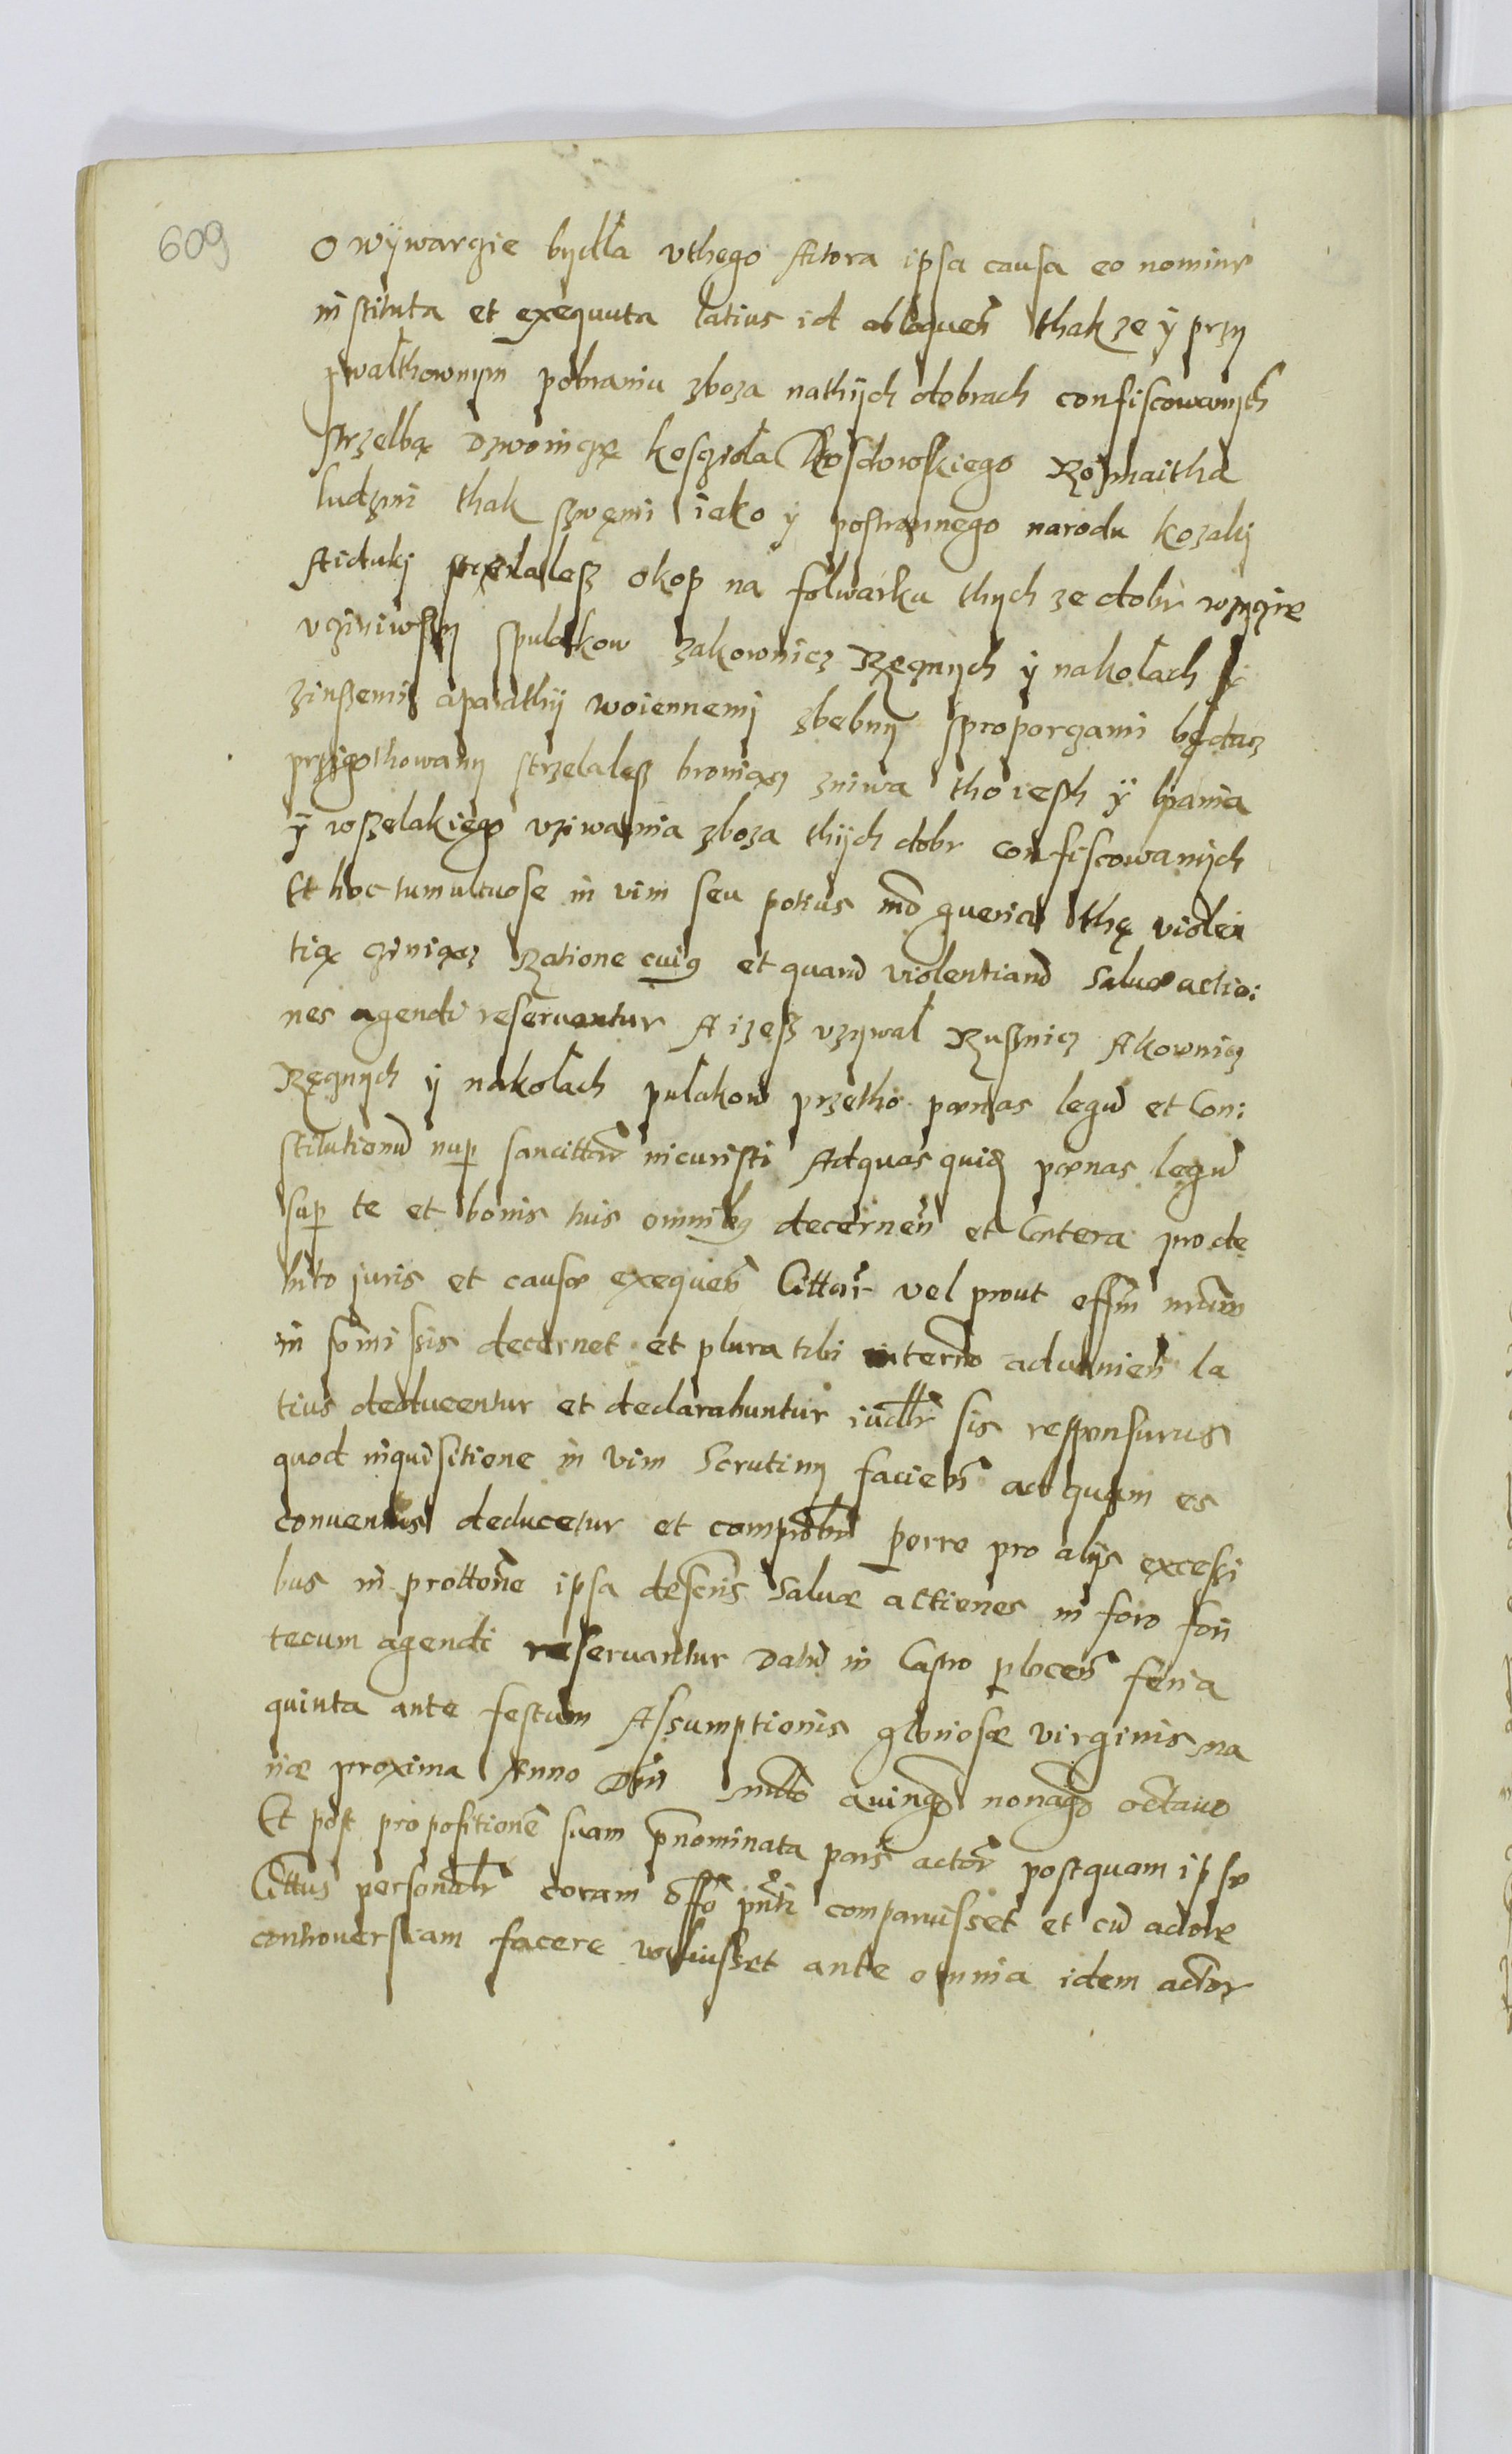 609
O wÿwargie bydła vthego Actora ipsa causa eo nomine
instituta et exequuta latius id obloquen̄ thak ze ÿ przy
gwałthownym pobraniu zboza nathÿch dobrach confiscowanych
strzelbą Dzwoniczę kosczioła Rozmaitha
ludzmi thak szwęmi iako ÿ postronnego narodu kozaki
Aiduki strzelałesz okop na folwarku thych ze dobr
vcziniwszy spułakow zakownicz Ręcznych ÿ nakołach
zinszemi aparathÿ woiennemi zbebny sproporczami będącz
przigothowany strzelałesz broniącz zniwa tho iesth ÿ brania
ÿ wszelakiego vziwania zboza thÿch dobr confiscowanÿch
Et hoc tumultuose in vim seu potius mō guerica thę violen
tią cziniącz Ratione cuiq et quarū violentiarū saluæ actio:
nes agendi reseruantur A izesz vzywał Rusznicz Akownicz
Ręcznych ÿ nakołach pułakow przetho pœnas legū et Con:
stitutionū nup sancittarū incuristi Adquas quidē pœnas legū
sup te et bonis tuis omnibq decernen̄ et Cætera pro de
bito juris et causæ exequen̄ Cittaris vel prout offm nrūm
in præmissis decernet et plura tibi in termīo aduenien̄ la
tius deducentur et declarabuntur iudlr̄ sis responsurus
quod inquisitione in vim Scrutiny facien̄ ad quam es
conuentus deducetur et comprobr̄ porro pro alijs excessi
bus in prottōne ipsa descris saluæ actiones in foro fori
tecum agendi reseruantur Datū in Castro plocen̄ feria
quinta ante festum Assumptionis gloriosæ virginis ma
riæ proxima Anno Dnī millō quingō nonagō octauo
Et post propositionē suam prænominata pars actor̄ postquam ipse
Cittus personalr̄ coram offo pn̄ti comparuisset et cū actore
controuersiam facere voluisset ante omnia idem actor